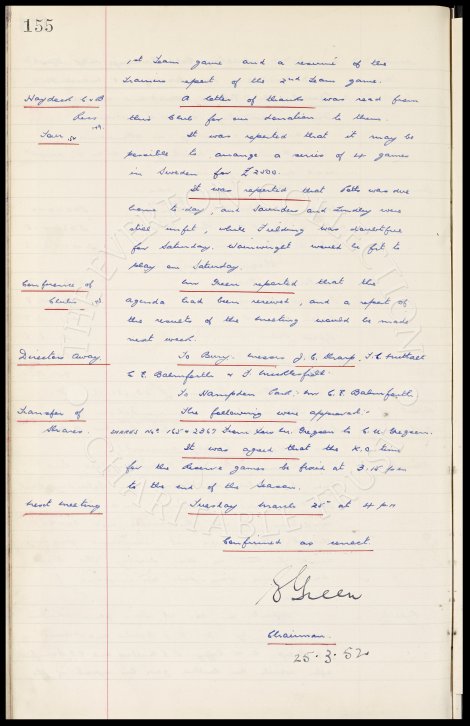 155
1st Team game and a resumé of the
Trainers report of the 2nd Team game.
Haydock C & B A letter of thanks was read from
this Club for our donation to them.
Tour It was reported that it may be
possible to arrange a series of 4 games
in Sweden for £2500.
It was reported that Potts was due
home to-day, and Saunders and Lindley were
still unfit, while Fielding was doubtful
for Saturday. Wainwright would be fit to
play on Saturday.
Conference of Mr Green reported that the
Clubs agenda had been received, and a report of
the results of the meeting would be made
next week.
Directors Away. To Bury. Messrs J. C. Sharp, T. C. Nuttall
C. E. Balmforth &
To Hampden Park. Mr C. E. Balmforth.
Transfer of The following were approved:-
Shares. SHARES Nos 165 & 2367 From to
It was agreed that the K.O. time
for the Reserve games be fixed at 3.15 pm
to the end of the Season.
Next meeting Tuesday March 25th at 4 pm
Confirmed as correct.
Green
Chairman.
25.3.52
THE EVERTON COLLECTION
CHARITABLE TRUST